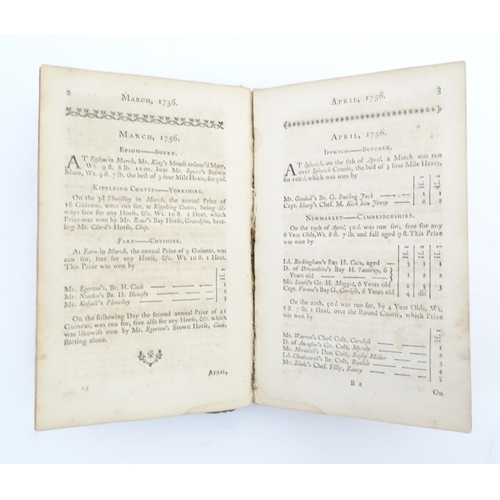 2 MARCH, 1756.
MARCH, 1756.
EPSOM—SURRY.
AT Epsom in March, Mr. King's Mouse colour'd Mare,
Wt. 9 ft. 8 lb. 12 oz. beat Mr. Brown
Mare, Wt. 9 ft. 7 lb. the best of 3 four Mile Heats, for 50l.
KIPPLING COATES—YORKSHIRE.
On the 3d Thursday in March, the annual Prize of
16 Guineas, was run for, at Kippling Coates, being all
ways free for any Horse, &c. Wt. 10 ft. 1 Heat, which
Prize was won by Mr. Bay Horse, Grandison, beat-
ing Mr. Horse, Chip.
FARN—CHESHIRE.
At Farn in March, the annual Prize of 9 Guineas, was
run for, free for any Horse, &c. Wt. 10 ft. 1 Heat.
This Prize was won by
H.
Mr. Egerton's Br. H. Cade 1
Mr. Br. H. 2
Mr. 3
On the following Day the second annual Prize of 21
Guineas, was run for, free also for any Horse, &c. which
was likewise won by Mr. Egerton's Brown Horse, Cade,
starting alone.
APRIL,
APRIL, 1756. 3
APRIL, 1756.
IPSWICH—SUFFOLK.
AT Ipswich, on the 6th of April, a March was run
over Ipswich Course, the best of 3 four Mile Heats,
for 100l. which was won by
Mr. Br. G. Smiling Jack 1 1
Capt. Ches. M. Jenny 2 2
NEWMARKET—CAMBRIDGESHIRE.
On the 19th of April, 50l. was run for, free for any
6 Year Olds, Wt. 8 ft. 7 lb. and full aged 9 ft. This Prize
was won by
Ld. Rockingham's Bay H. Cato, aged 3 1 1
D. of Devonshire's Bay H. 6
Years old 1 2 2
Mr. Gr. H. Maggot, 6 Years old
Capt. Vernon's Bay G. 6 Years old
On the 20th, 50l. was run for, by 4 Year Olds, Wt.
8 ft. 7 lb. 1 Heat, over the Round Course, which Prize
was won by
H.
Mr. Warren's Ches. Colt, Careless 1
D. of Ancaster's Gr. Colt, Myrtle 2
Mr. Don. Colt, Miller 3
Ld. Br. Colt, Bumble 4
Mr. Ches. Filly, Fanny 5
B 2
On